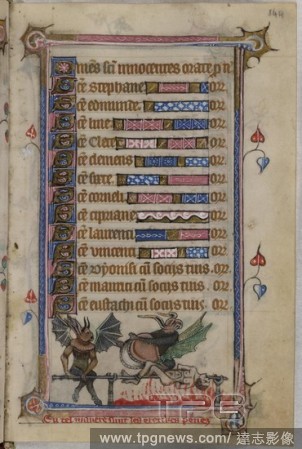 144
mnēs scī innocentes orate p n
Sce stephane or.
Sce edmunde or.
Sce line or.
Sce Clete or.
Sce clemens or.
Sce sixte or.
Sce corneli or.
Sce cipriane or.
Sce laurenti or.
Sce vincenti or.
Sce dyonisi cū socijs tuis. or.
Sce maurici cū socijs tuis. or.
Sce eustachi cū socijs tuis. or.
TPG
www.tpgnews.com / 達志影像